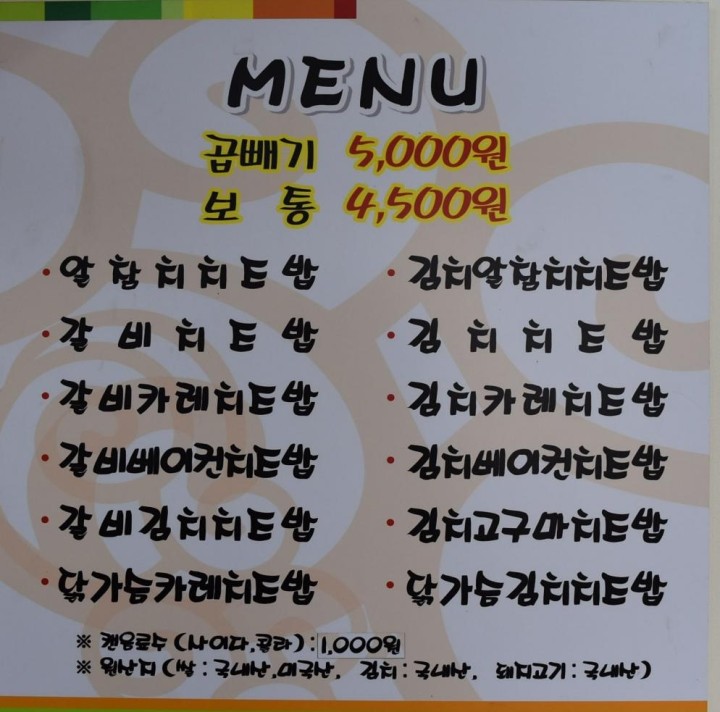 MENU
곱빼기 5,000원
보통 4,500원
· 알참치치즈밥
· 김치알참치치즈밥
· 갈비치즈밥
· 김치치즈밥
· 갈비카레치즈밥
· 김치카레치즈밥
· 갈비베이컨치즈밥
· 김치베이컨치즈밥
· 갈비김치치즈밥
· 김치고구마치즈밥
· 닭가슴카레치즈밥
· 닭가슴김치치즈밥
※ 캔음료수 (사이다,콜라) : 1,000원
※ 원산지 (쌀 : 국내산,미국산, 김치 : 국내산, 돼지고기 : 국내산)